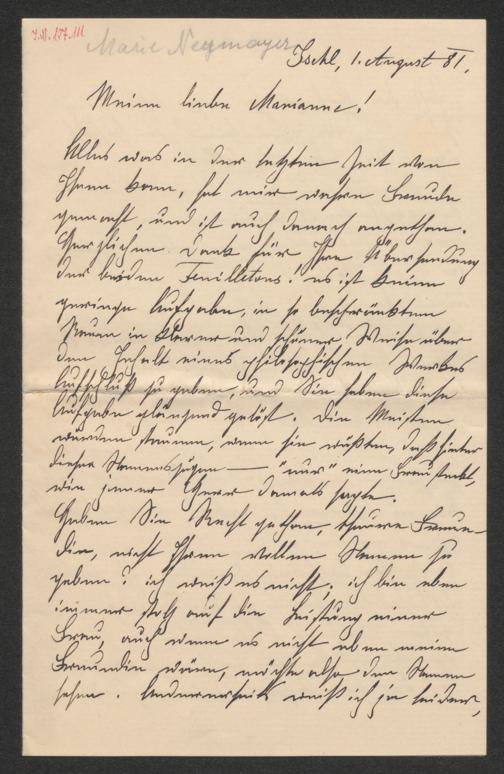 I.N. 177.111
Marie Neymayer
Ischl, 1. August 81.
Meine liebe Marianne!
Alles was in der letzten Zeit von
Ihnen kam, hat mir wahre Freude
gemacht, und ist auch danach angethan.
Herzlichen Dank für Ihre Übersendung
der beiden Feuilletons! es ist keine
geringe Aufgabe, in so beschränktem
Raum in klarer und schöner Weise über
den Inhalt eines philosophischen Werkes
Aufschluß zu geben, und Sie haben diese
Aufgabe glänzend gelöst. Die Meisten
würden staunen, wenn sie wüßten, daß hinter
diesen Namenszügen — "nur" eine Frau steckt,
wie jener Herr damals sagte.
Haben Sie Recht gethan, theuere Freun-
din, nicht Ihren vollen Namen zu
geben? ich weiß es nicht; ich bin eben
immer stolz auf die Leistung einer
Frau, auch wenn es nicht eben meine
Freundin wäre, möchte also den Namen
sehen. Andererseits weiß ich ja leider,